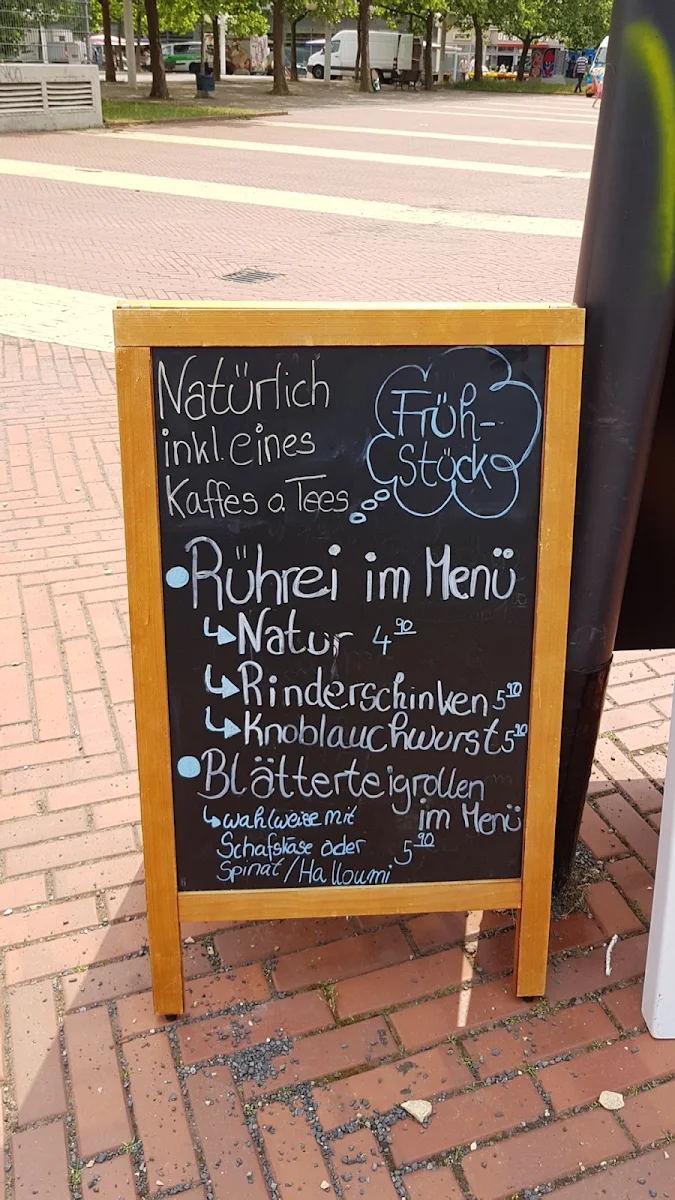 Natürlich
inkl. eines
Kaffes o. Tees
Früh-
stück
Rührei im Menü
Natur 4 90
Rinderschinken 5 90
Knoblauchwurst 5 90
Blätterteigrollen
im Menü
wahlweise mit
Schafskäse oder 5 90
Spinat/Halloumi